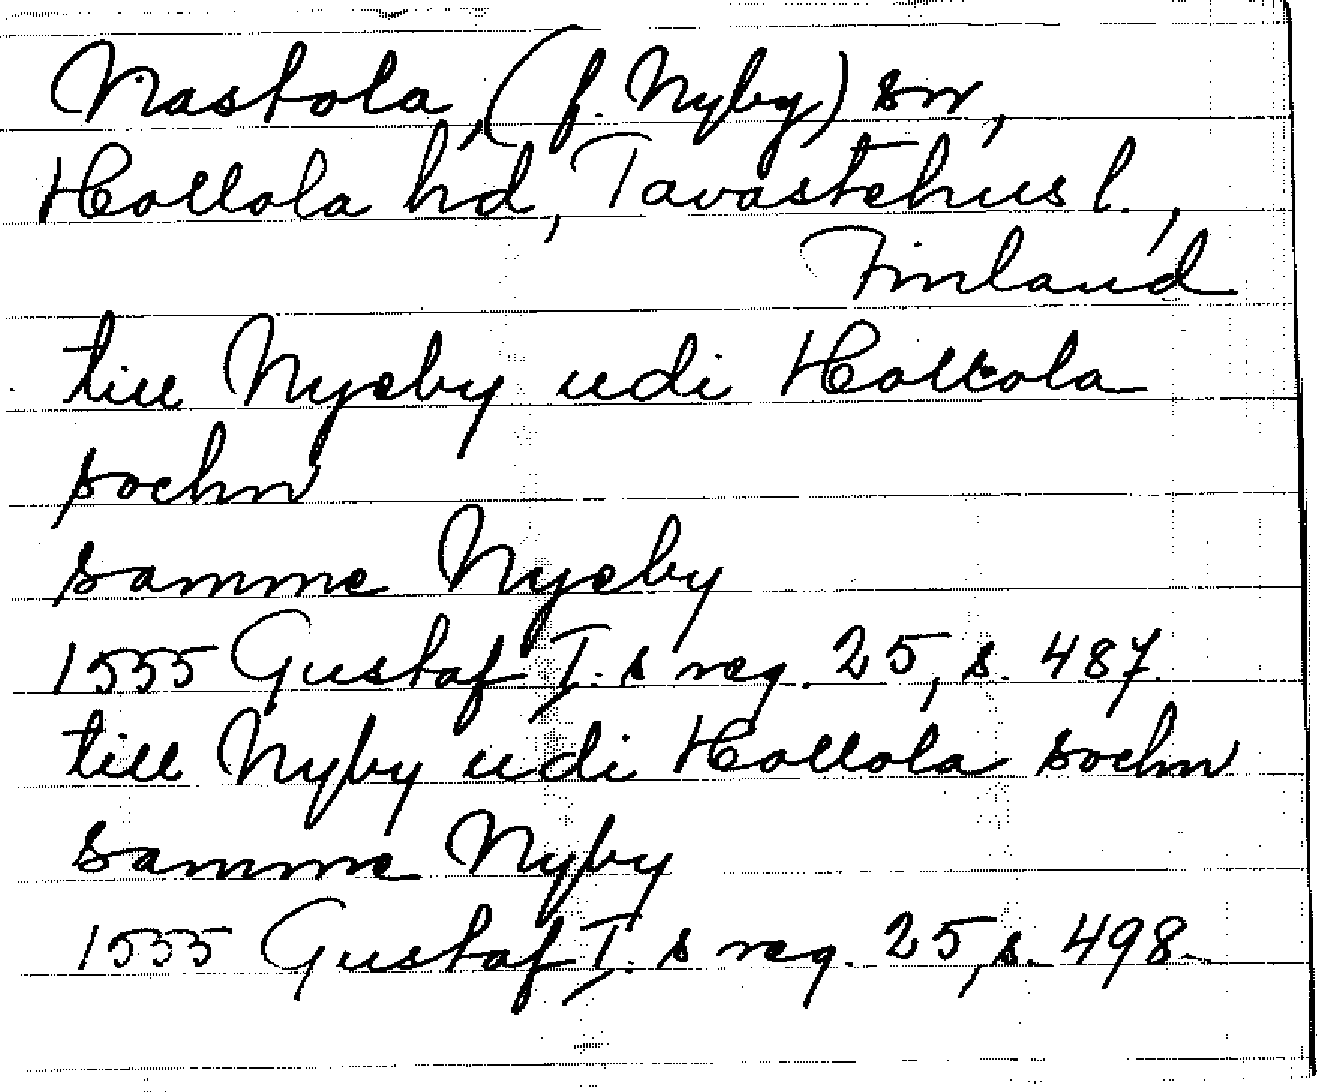 Nastola, (f. Nyby) sn,
Hollola hd, Tavastehus l.,
Finland
till Nyeby udi Hollola
sochn
samme Nyeby
1555 Gustaf I:s reg. 25, s. 487.
till Nyby udi Hollola sochn
samme Nyby
1555 Gustaf I:s reg. 25, s. 498.